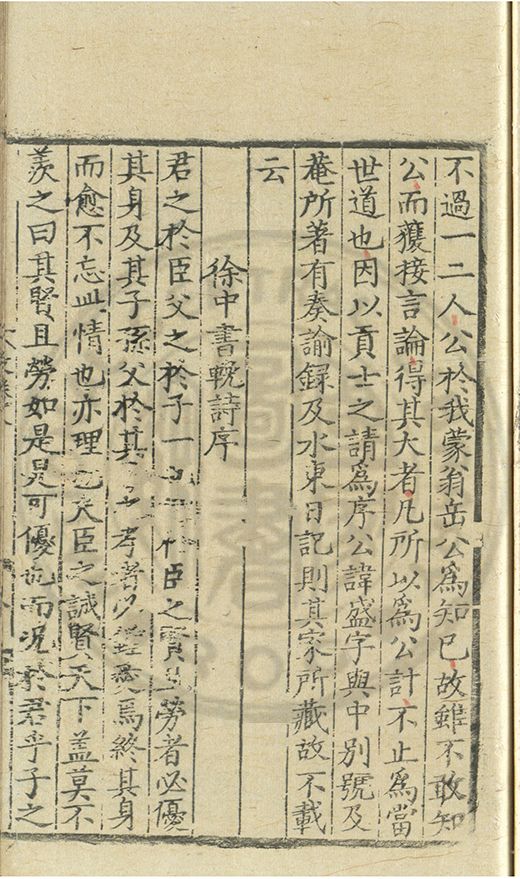 不過一二人公於我蒙翁岳公爲知已故雖不敢知
公而獲接言論得其大者凡所以爲公計不止爲當
世道也因以貢士之請爲序公諱盛字與中别號及
菴所著有奏諭録及水東日記則其家所藏故不載
云
徐中書輓詩序
君之於臣父之於子一也臣之賢且勞者必優
其身及其子孫父於其考者必焉終其身
而愈不忘此情也亦理也夫臣之誠賢天下盖莫不
羨之曰其賢且勞如是是可優也而况於君乎子之